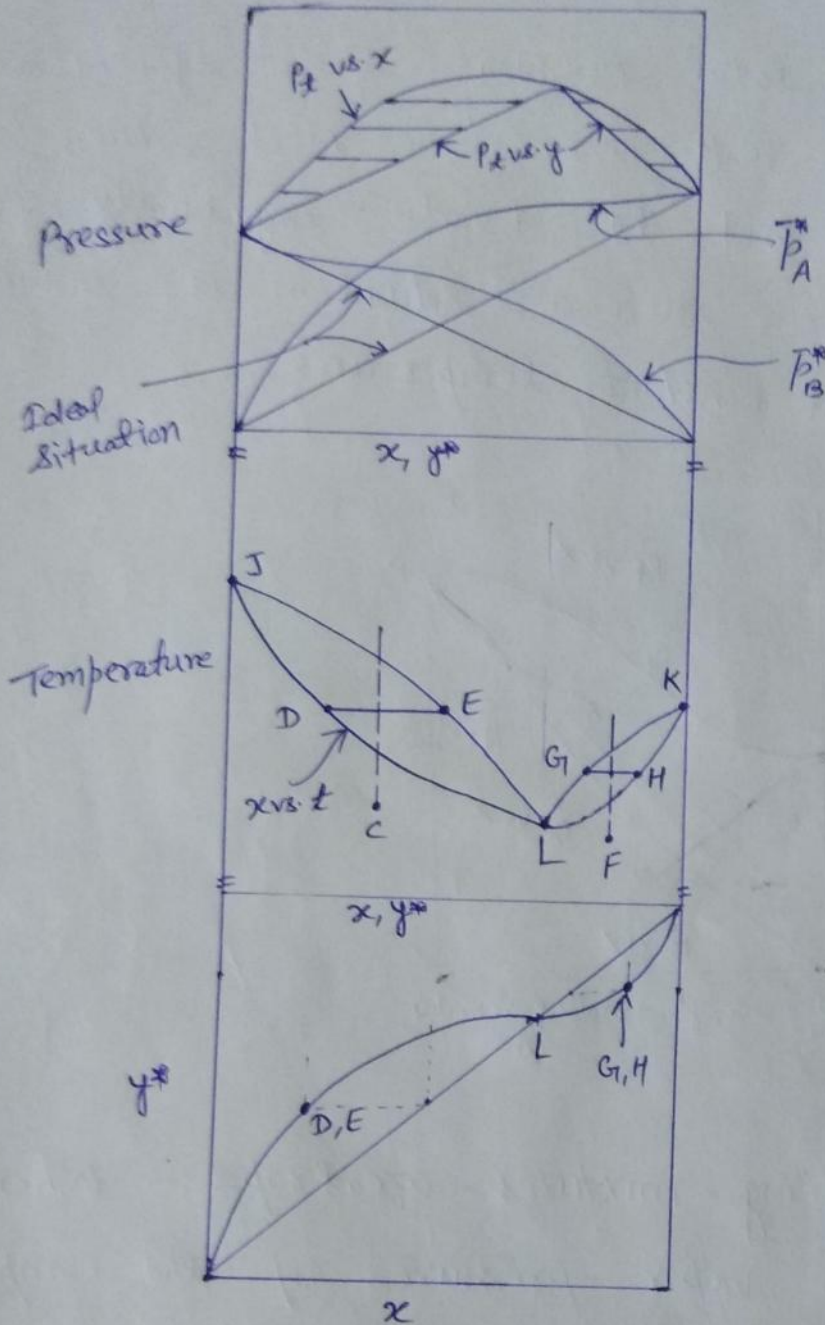 P_t vs. x
P_t vs. y
Pressure
p̄*_A
p̄*_B
Ideal
Situation
x, y*
J
Temperature
K
D
E
G
H
x vs. t
C
L
F
x, y*
y*
L
G, H
D, E
x